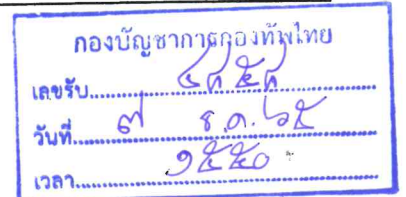 กองบัญชาการกองทัพไทย
เลขรับ
วันที่ ๗ ธ.ค. ๖๕
เวลา ๑๕๕๐